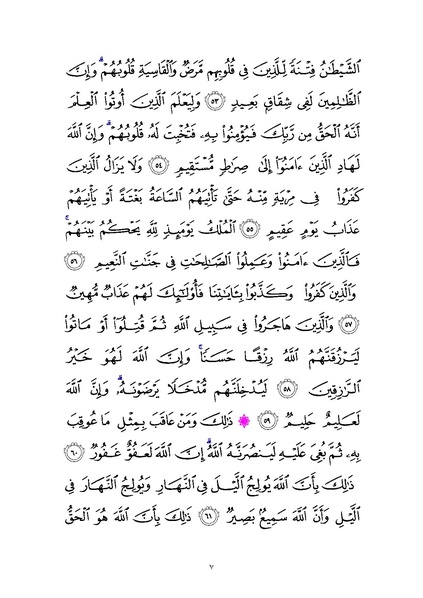 الشَّيْطَٰنُ فِتْنَةً لِّلَّذِينَ فِى قُلُوبِهِم مَّرَضٌ وَالْقَاسِيَةِ قُلُوبُهُمْ ۗ وَإِنَّ
الظَّٰلِمِينَ لَفِى شِقَاقٍۭ بَعِيدٍ ۝٥٣ وَلِيَعْلَمَ الَّذِينَ أُوتُوا۟ الْعِلْمَ
أَنَّهُ الْحَقُّ مِن رَّبِّكَ فَيُؤْمِنُوا۟ بِهِۦ فَتُخْبِتَ لَهُۥ قُلُوبُهُمْ ۗ وَإِنَّ اللَّهَ
لَهَادِ الَّذِينَ ءَامَنُوٓا۟ إِلَىٰ صِرَٰطٍ مُّسْتَقِيمٍ ۝٥٤ وَلَا يَزَالُ الَّذِينَ
كَفَرُوا۟ فِى مِرْيَةٍ مِّنْهُ حَتَّىٰ تَأْتِيَهُمُ السَّاعَةُ بَغْتَةً أَوْ يَأْتِيَهُمْ
عَذَابُ يَوْمٍ عَقِيمٍ ۝٥٥ الْمُلْكُ يَوْمَئِذٍ لِّلَّهِ يَحْكُمُ بَيْنَهُمْ ۚ
فَالَّذِينَ ءَامَنُوا۟ وَعَمِلُوا۟ الصَّٰلِحَٰتِ فِى جَنَّٰتِ النَّعِيمِ ۝٥٦
وَالَّذِينَ كَفَرُوا۟ وَكَذَّبُوا۟ بِـَٔايَٰتِنَا فَأُو۟لَٰٓئِكَ لَهُمْ عَذَابٌ مُّهِينٌ
۝٥٧ وَالَّذِينَ هَاجَرُوا۟ فِى سَبِيلِ اللَّهِ ثُمَّ قُتِلُوٓا۟ أَوْ مَاتُوا۟
لَيَرْزُقَنَّهُمُ اللَّهُ رِزْقًا حَسَنًا ۚ وَإِنَّ اللَّهَ لَهُوَ خَيْرُ
الرَّٰزِقِينَ ۝٥٨ لَيُدْخِلَنَّهُم مُّدْخَلًا يَرْضَوْنَهُۥ ۗ وَإِنَّ اللَّهَ
لَعَلِيمٌ حَلِيمٌ ۝٥٩ ۞ ذَٰلِكَ وَمَنْ عَاقَبَ بِمِثْلِ مَا عُوقِبَ
بِهِۦ ثُمَّ بُغِىَ عَلَيْهِ لَيَنصُرَنَّهُ اللَّهُ ۗ إِنَّ اللَّهَ لَعَفُوٌّ غَفُورٌ ۝٦٠
ذَٰلِكَ بِأَنَّ اللَّهَ يُولِجُ الَّيْلَ فِى النَّهَارِ وَيُولِجُ النَّهَارَ فِى
الَّيْلِ وَأَنَّ اللَّهَ سَمِيعٌۢ بَصِيرٌ ۝٦١ ذَٰلِكَ بِأَنَّ اللَّهَ هُوَ الْحَقُّ
٧